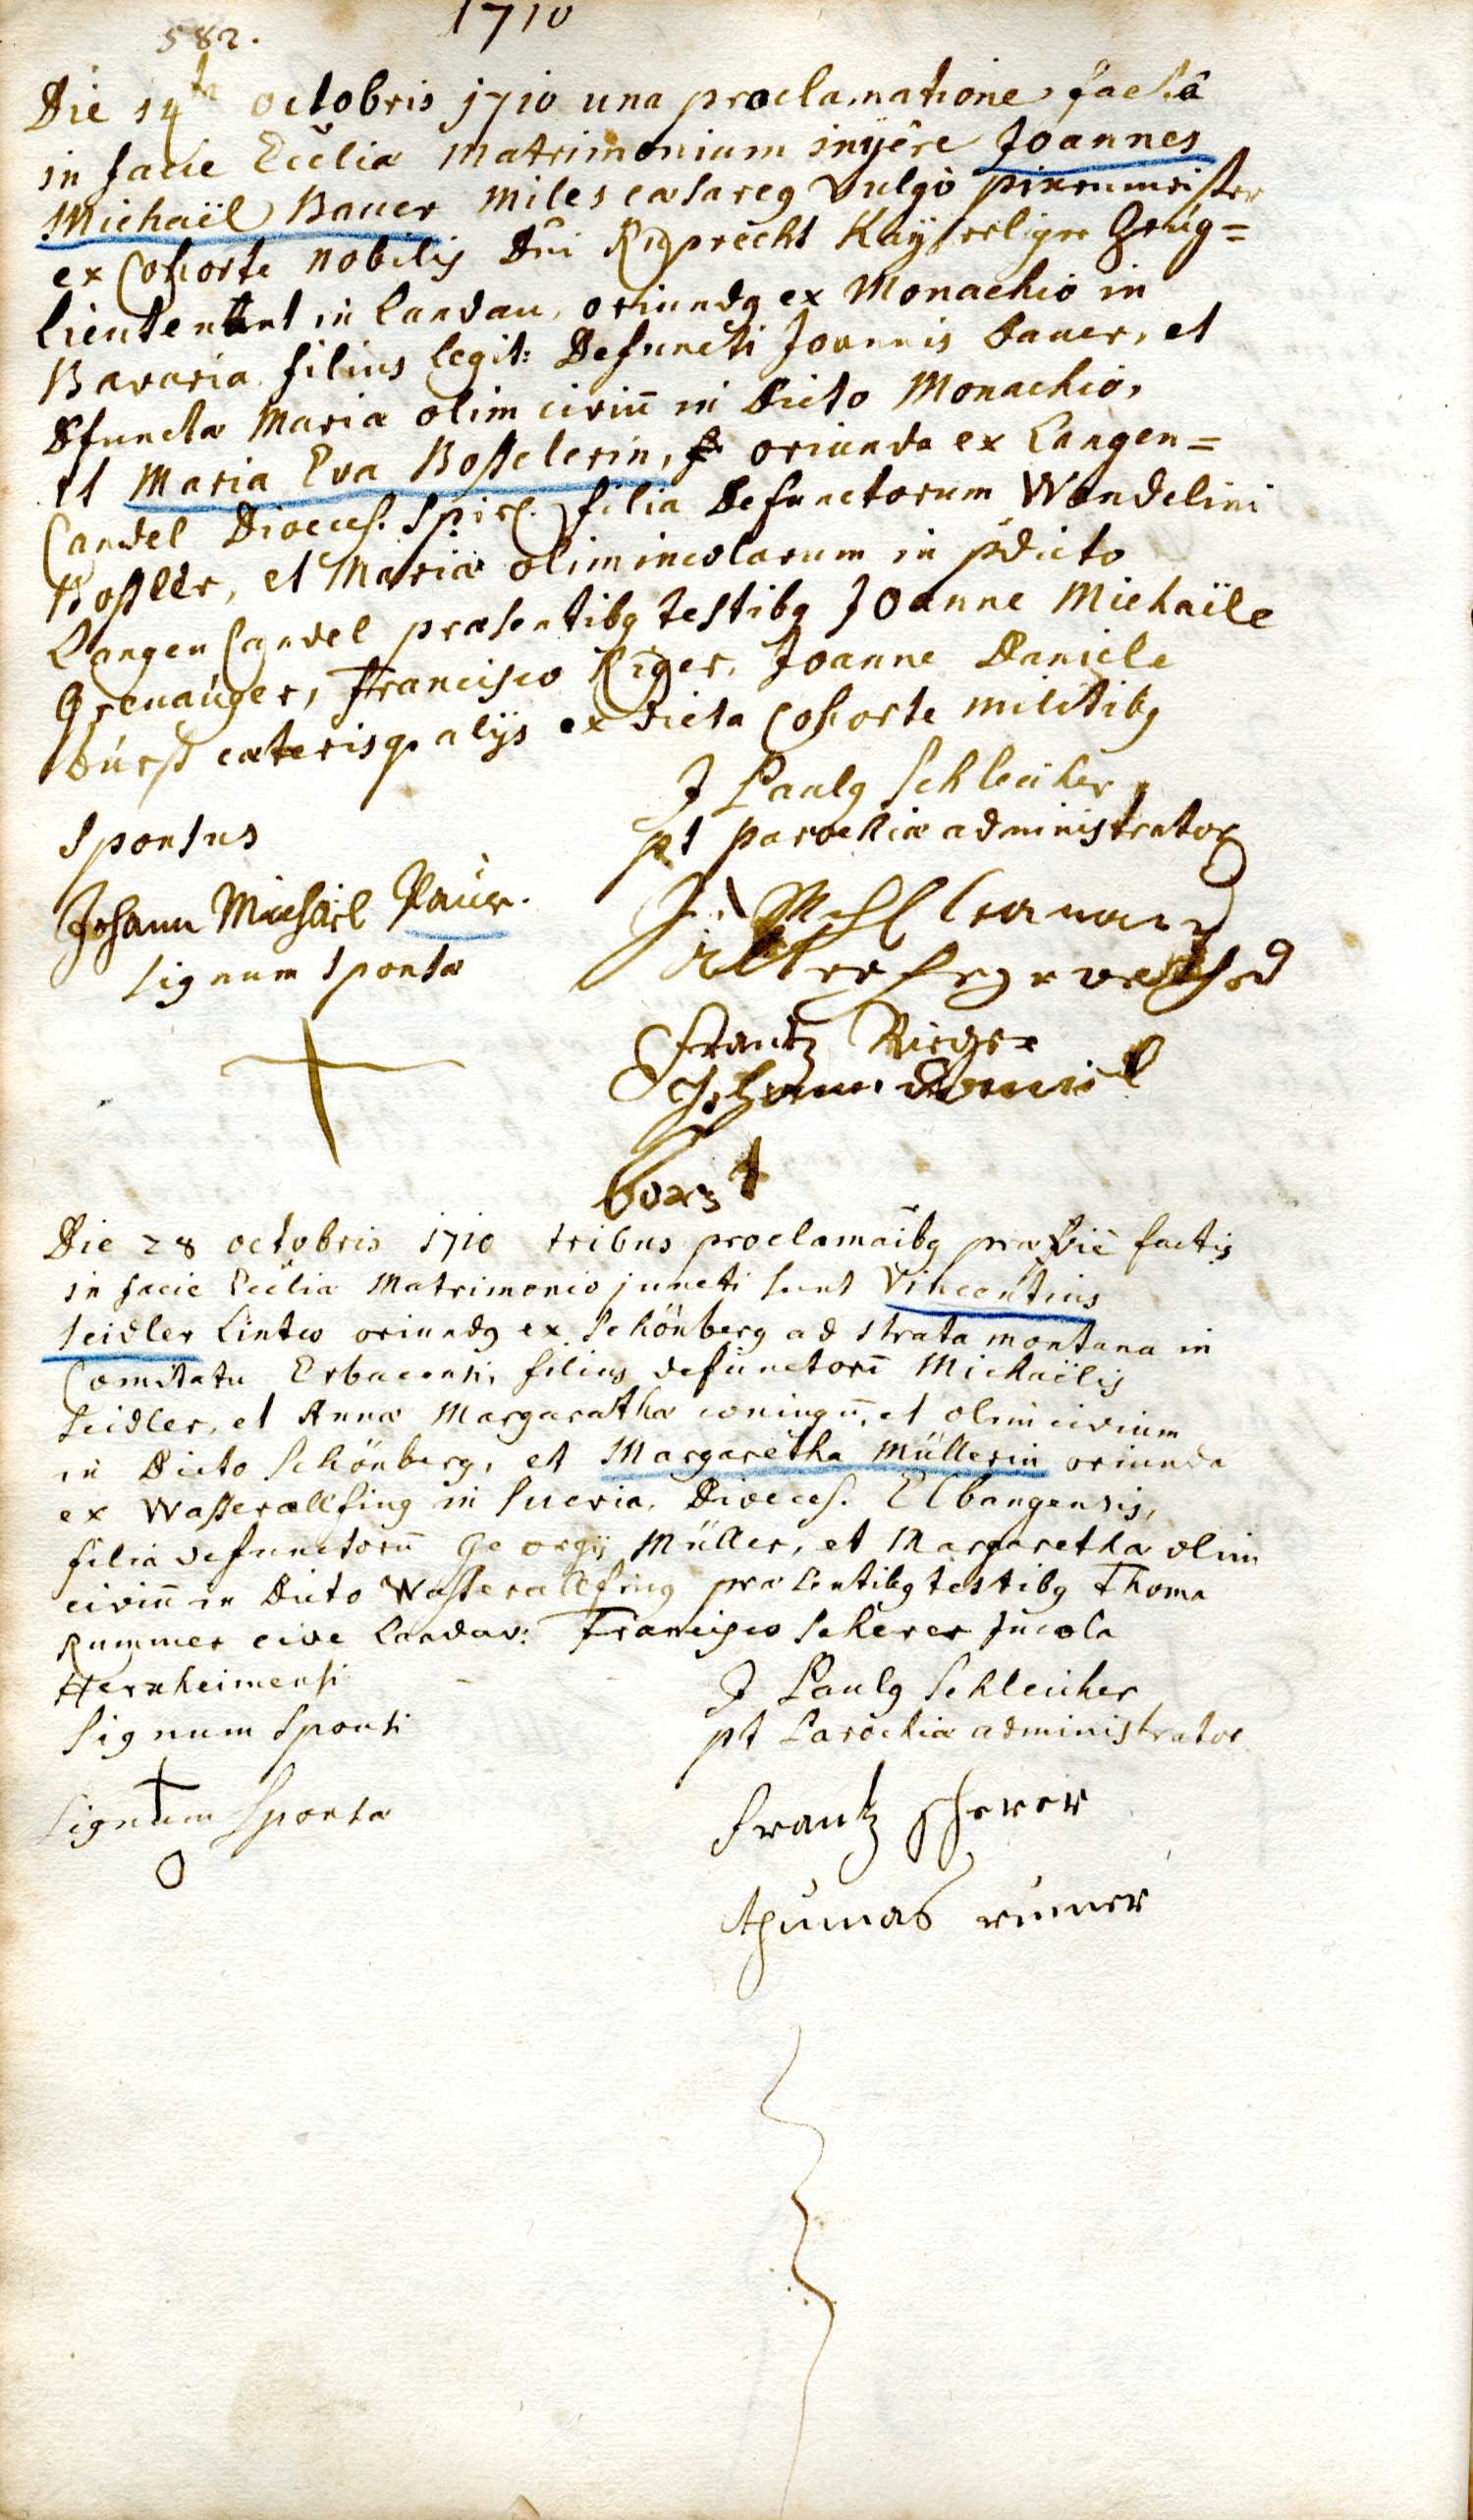 582.
1710
Die 14ta octobris 1710 una proclamatione factâ
in facie Eccliæ Matrimonium iniêre Joannes
Michaël Bauer miles cæsareq vulgò pixenmeister
ex Cohorte nobilis Dni Ruprecht Kayserliger Zeüg=
lieutenant in Landau, oriundq ex Monachio in
Bavaria filius legit: Defuncti Joannis Bauer, et
Dfunctæ Mariæ olim civiū in Dicto Monachio,
et Maria Eva Bosselerin, oriunda ex Langen=
Candel Dioeces. Spir. filia Defunctorum Wendelini
Bossler, et Mariæ olim incolarum in pdicto
Langen Candel præsentibq testibq Joanne Michaïle
Francisco Riger, Joanne Daniele
bürst cæterisq alijs ex dicta Cohorte militibq
J Paulq Schleicher
pt parochiæ administrator
Sponsus
Johann Michäel Paur.
Signum Sponsæ
Frantz Rieger
Johann Daniel
borst
Die 28 octobris 1710 tribus proclamāibq præviè factis
in facie Eccliæ Matrimonio juncti sunt Vincentius
Seidler Linteo oriundq ex Schönberg ad strata montana in
Comitatu Erbacensi, filius defunctorū Michaëlis
Seidler, et Annæ Margarathæ coniugū, et olim civium
in Dicto Schönberg, et Margaretha Müllerin oriunda
ex Wasserallfing in Suevia, Dioeces. Elbangensis,
filia defunctorū Georgij Müller, et Margarethæ olim
civiū in Dicto Wasserallfing præsentibq testibq Thoma
Rummer cive Landav: Francisco Scherer Incola
Herxheimensi
J Paulq Schleicher
pt Parochiæ administrator
Signum Sponsi
Signum Sponsæ
Frantz scherer
thumas rümer